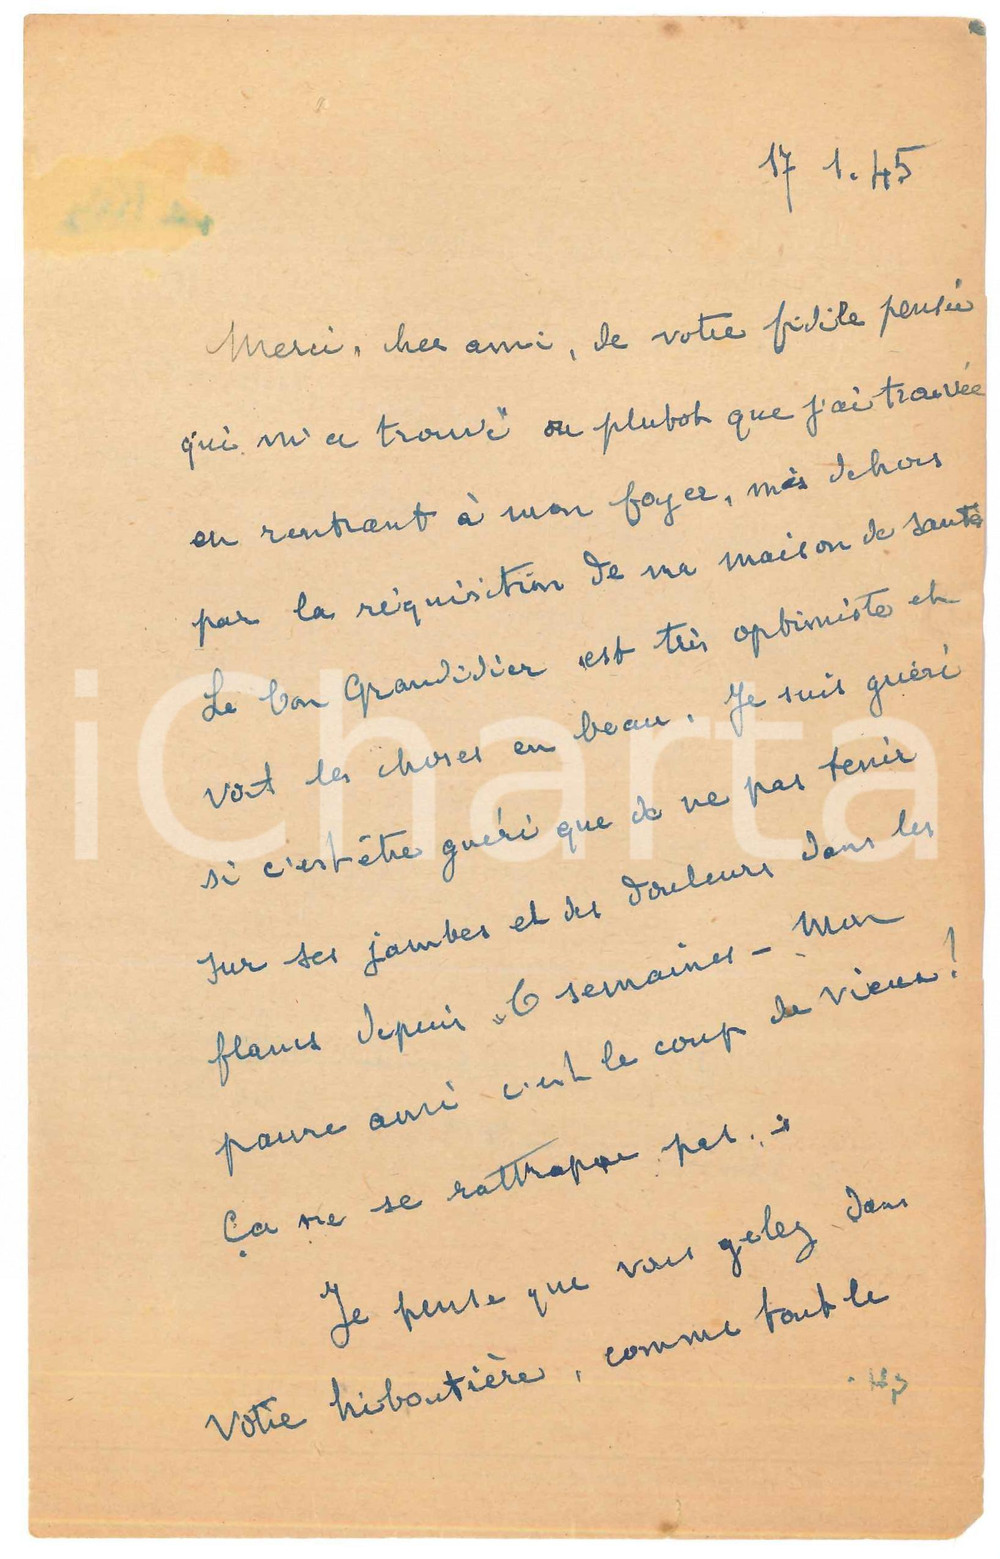 17 1.45
Merci, cher ami, de votre fidèle pensée
qui m'a trouvé ou plutot que j'ai trouvée
en rentrant à mon foyer, mis dehors
par la réquisition de ma maison de santé
Le bon Grandidier est très optimiste et
voit les choses en beau. Je suis guéri
si c'est être guéri que de ne pas tenir
sur ses jambes et des douleurs dans les
flancs depuis 6 semaines - Mon
pauvre ami c'est le coup de vieux!
Ça ne se rattrape pas..
Je pense que vous gelez dans
votre hiboutière, comme tout le
iCharta